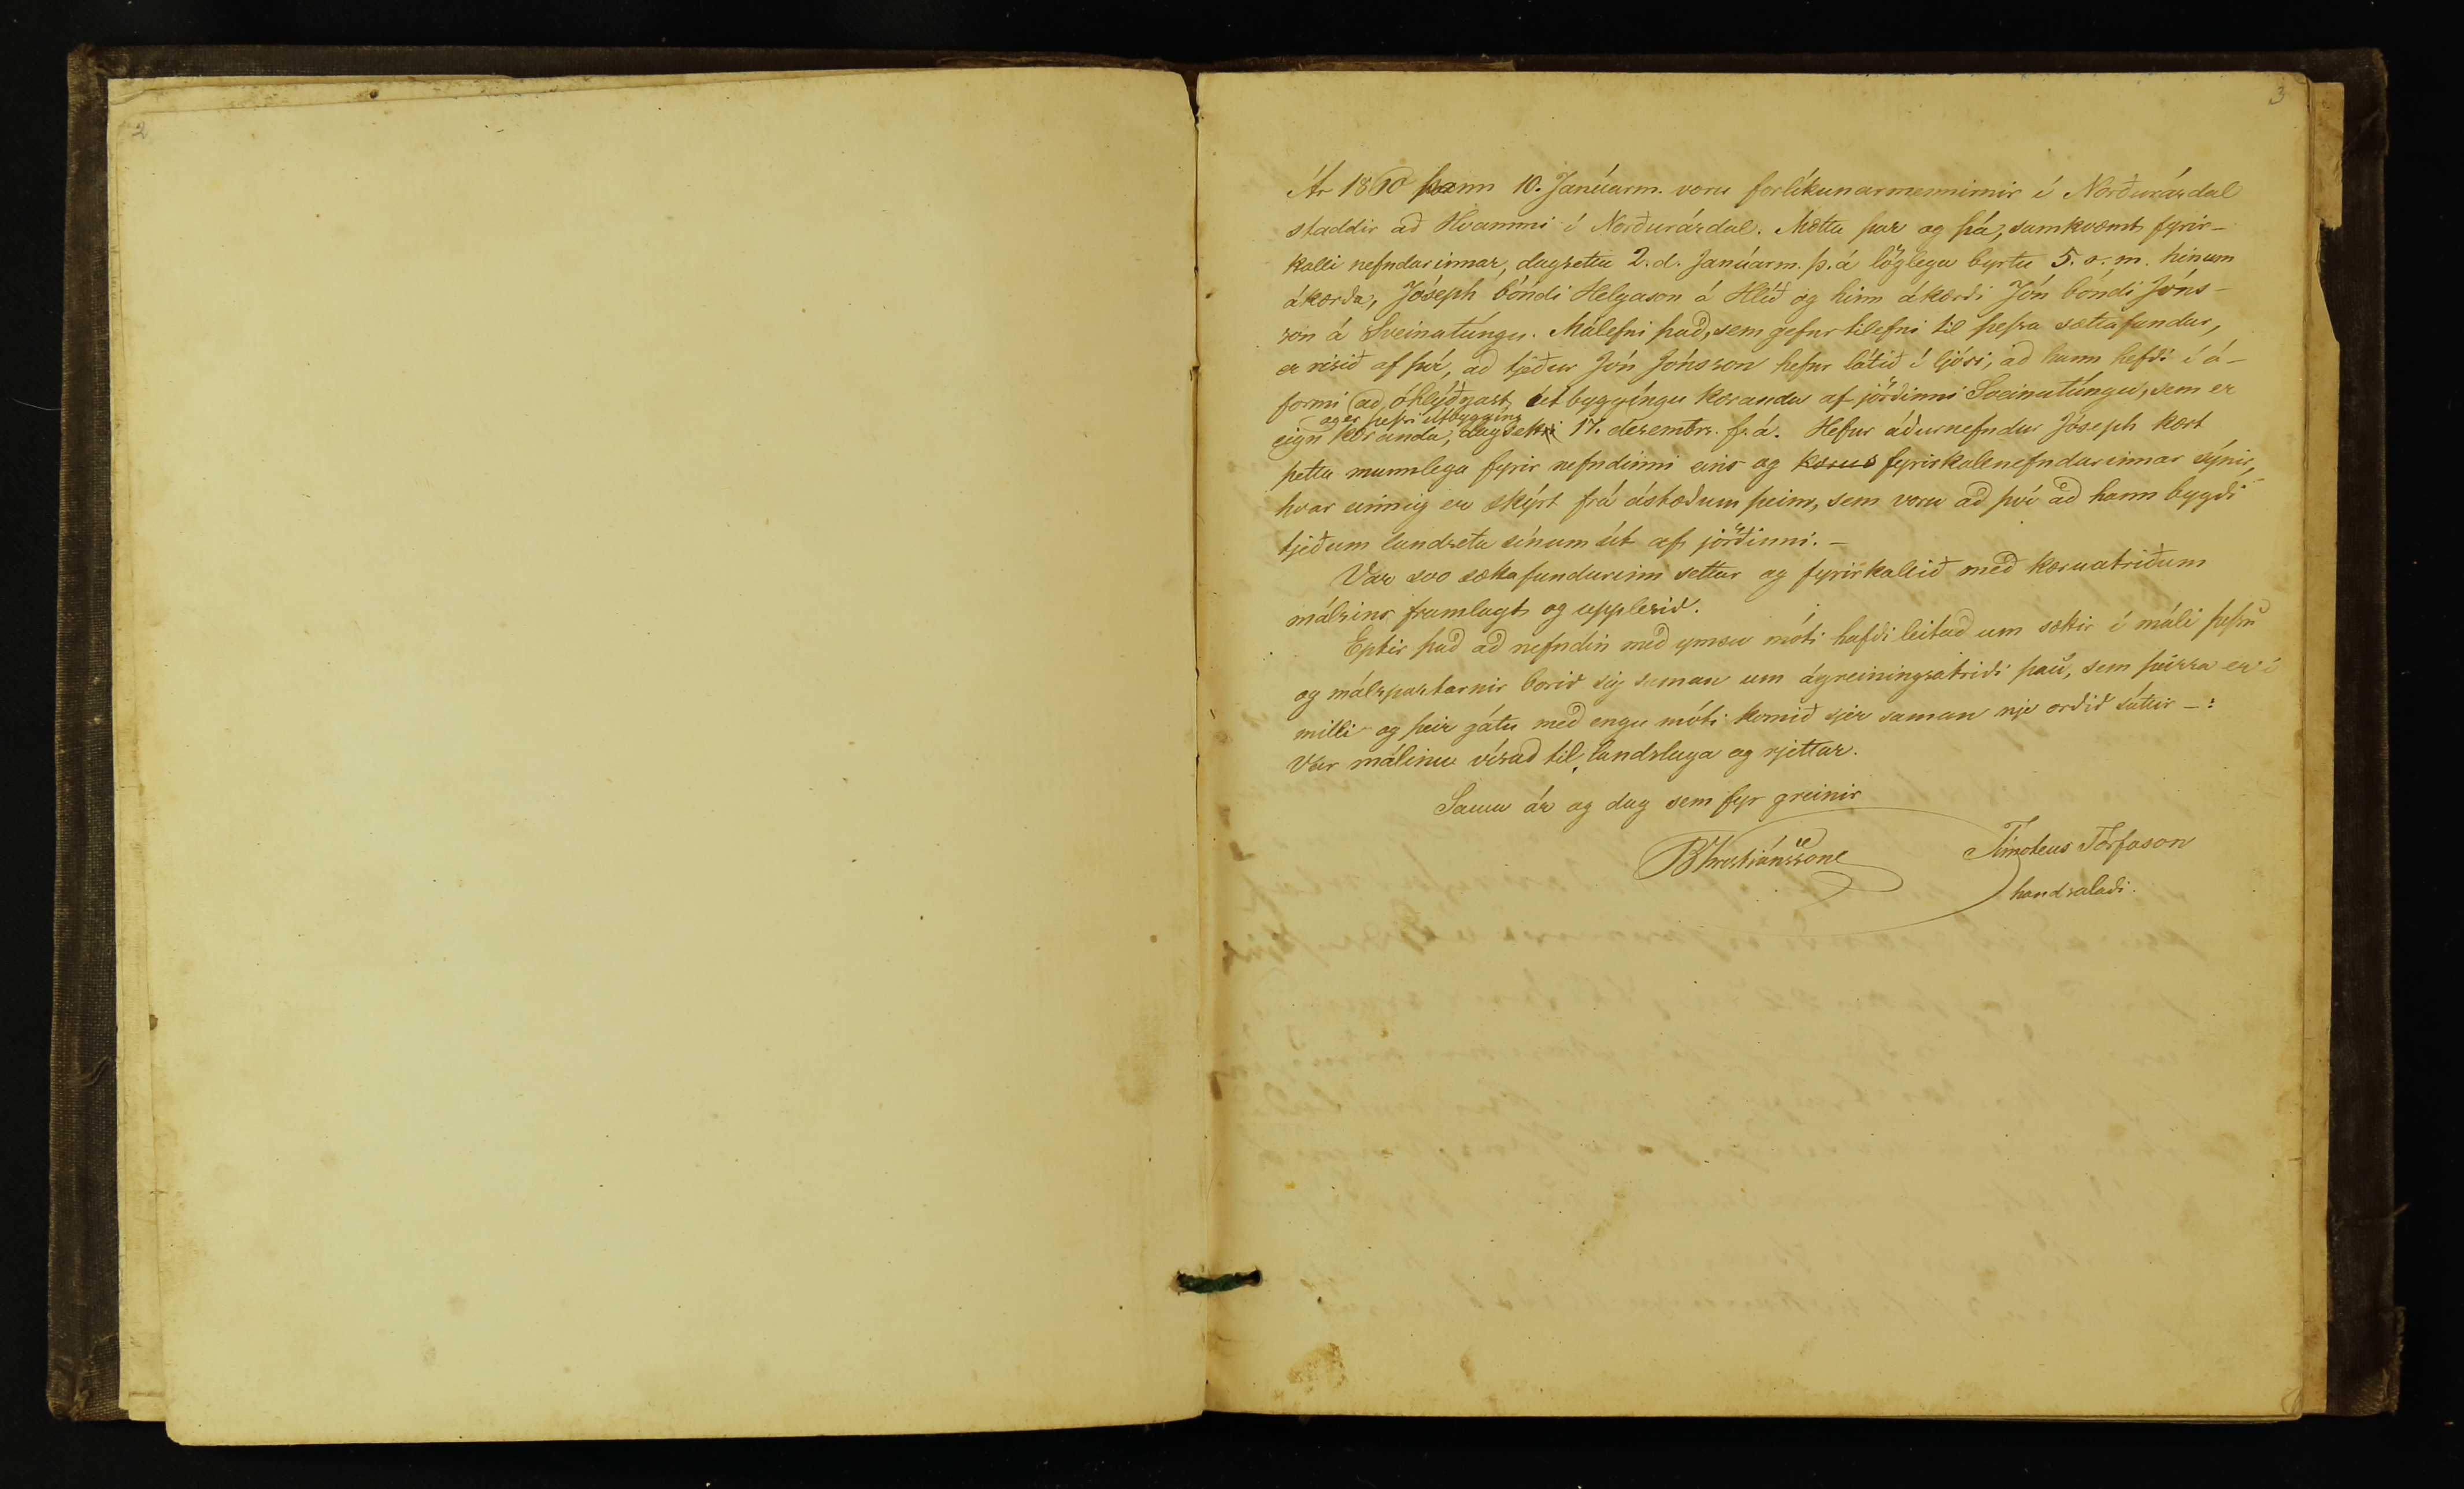 2
3
Ár 1860 þann 10. Janúarm. voru forlíkunarmennirnir í Norðurárdal
staddir að Hvammi í Norðurárdal. Mættu þar og þá, samkvæmt fyrir-
kalli nefndarinnar, dagsettu 2. d. Janúarm. þ. á löglega byrtu 5. s. m. hinum
ákærða, Jóseph bóndi Helgason á Hlíð og hinn ákærði Jón bóndi Jóns-
son á Sveinatúngu. Málefni það, sem gefur tilefni til þessa sættafundar,
er risið af því, að tjeður Jón Jónsson hefur látið í ljósi, að hann hefði í á-
formi að óhlýðnast útbyggíngu kæranda af jörðinni Sveinatúngu, sem er
og er þessi útbyggíng
eign kæranda, dagsett 17. desembr. f. á. Hefur áðurnefndur Jóseph kært
þetta munnlega fyrir nefndinni eins og kærus fyrirkall nefndarinnar sýnir,
hvar einnig er skýrt frá ástæðum þeim, sem voru að því að hann bygði
tjeðum landseta sínum út af jörðinni. –
Var svo sættafundurinn settur og fyrirkallið með kæruatriðum
málsins framlagt og upplesið.
Eptir það að nefndin með ymsu móti hafði leitað um sættir í máli þessu
og málspartarnir borið sig saman um ágreiningsatriði þau, sem þeirra er í
milli og þeir gátu með engu móti komið sjer saman nje orðið sáttir –:
Var málinu vísað til landslaga og rjettar.
Sama ár og dag sem fyr greinir
BKristjánssone
Timoteus Torfason
handsalaði.